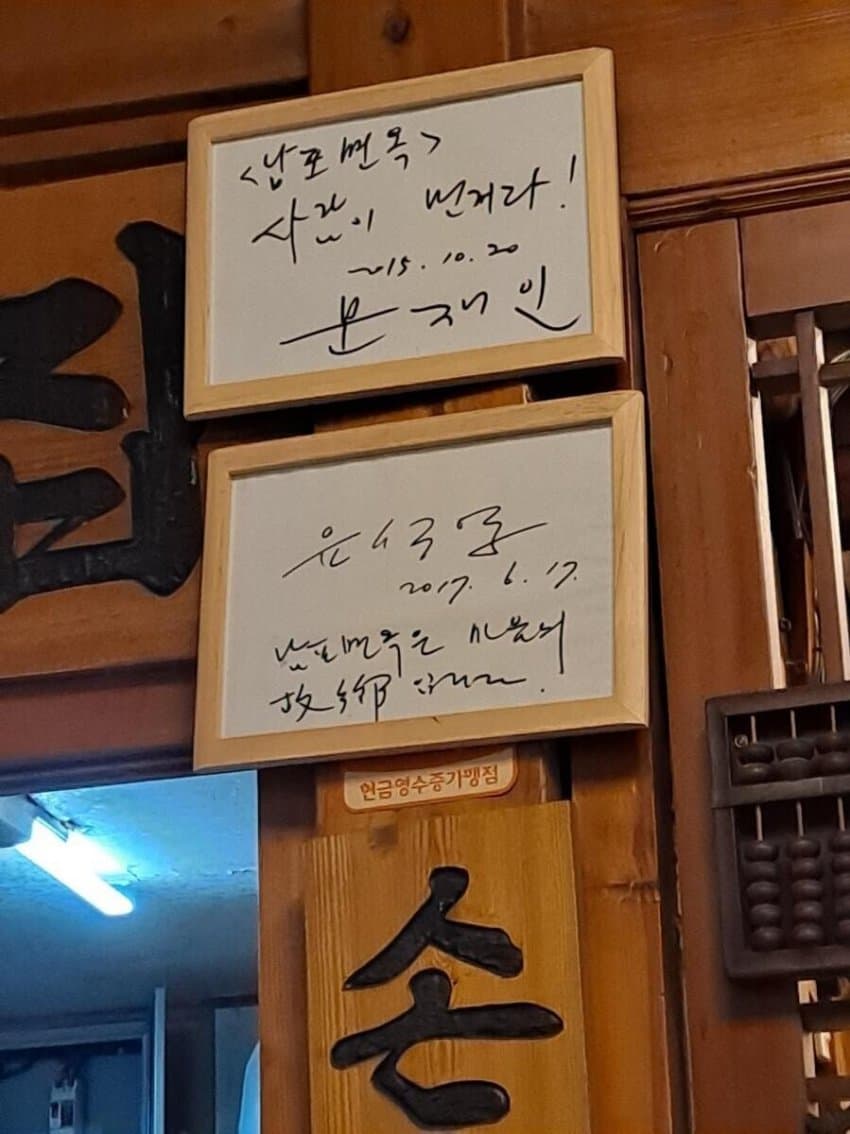 <남포면옥>
사람이 먼저다!
2015. 10. 20
문재인
2017. 6. 17.
남포면옥은 마음의
故鄕 입니다.
현금영수증가맹점
손